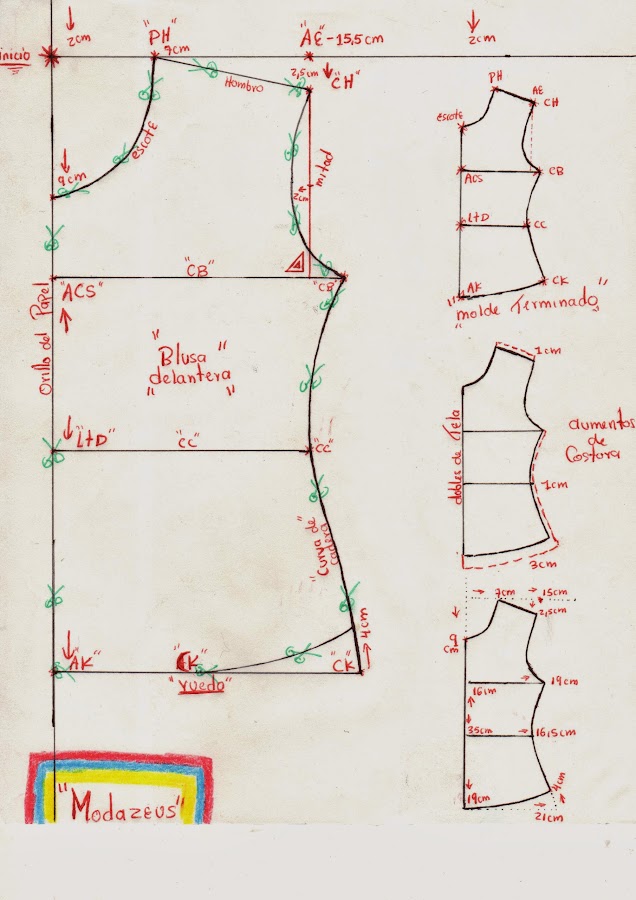 2cm
"PH"
"AE"-15,5cm
2cm
INICIO
9cm
2,5cm
"CH"
Hombro
escote
9cm
mitad
2cm
"CB"
"CB"
"ACS"
Orillo del Papel
"Blusa
delantera"
"LtD"
"CC"
"CC"
"Curva de
cadera"
4cm
"AK"
"CK"
"CK"
"ruedo"
"Modazeus"
PH
AE
CH
escote
ACS
CB
LtD
CC
AK
CK
"molde Terminado"
1cm
dobles de Tela
aumentos
de
Costura
1cm
3cm
7cm
15cm
2,5cm
9
cm
16cm
19cm
35cm
16,5cm
19cm
4cm
21cm